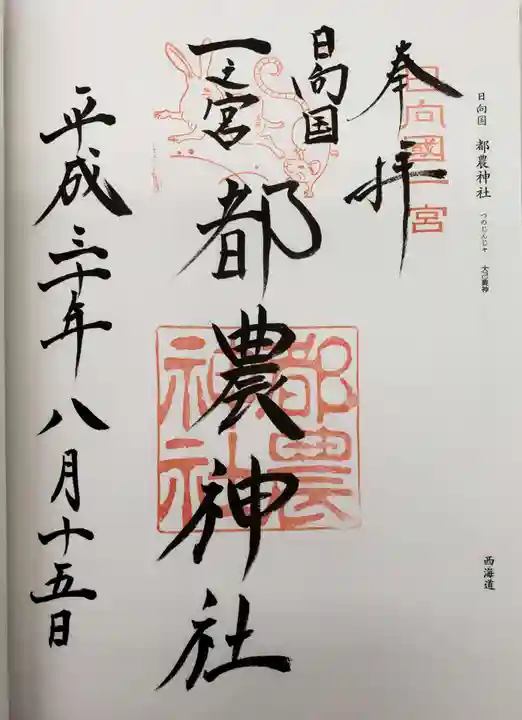 日向国 都農神社 つのじんじゃ 大己貴神
西海道
奉拝
日向國一宮
日向国
一之宮
都農神社
都農神社
平成三十年八月十五日